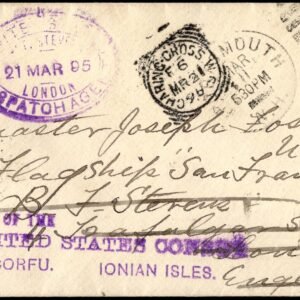 STEVE
21 MAR 95
LONDON
SPATCH AGE
CHARING-CROSS W.
F6
MR 21
95
MOUTH
MAR
11
530PM
aster Joseph Fos
Flagship San Fran
B. F. Stevens
4 Trafalgar S
Lon
Eng
OF THE
ITED STATES CONS
CORFU. IONIAN ISLES.